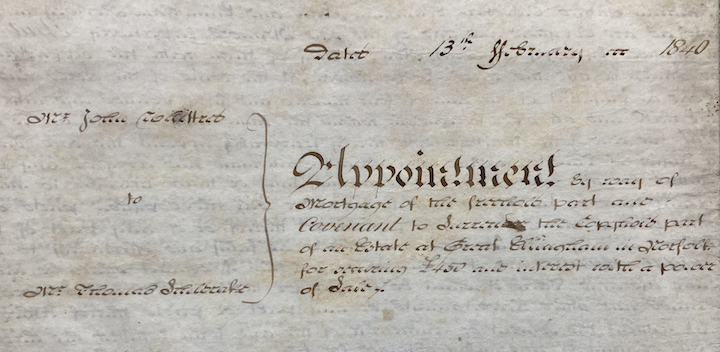 Dated 13th February 1840
Mr. John
to
Mr. Thomas
Appointment by way of
Mortgage of the freehold part and
Covenant to Surrender the Copyhold part
of an Estate at Great Ellingham in Norfolk
for securing £450 and interest with a power
of Sale